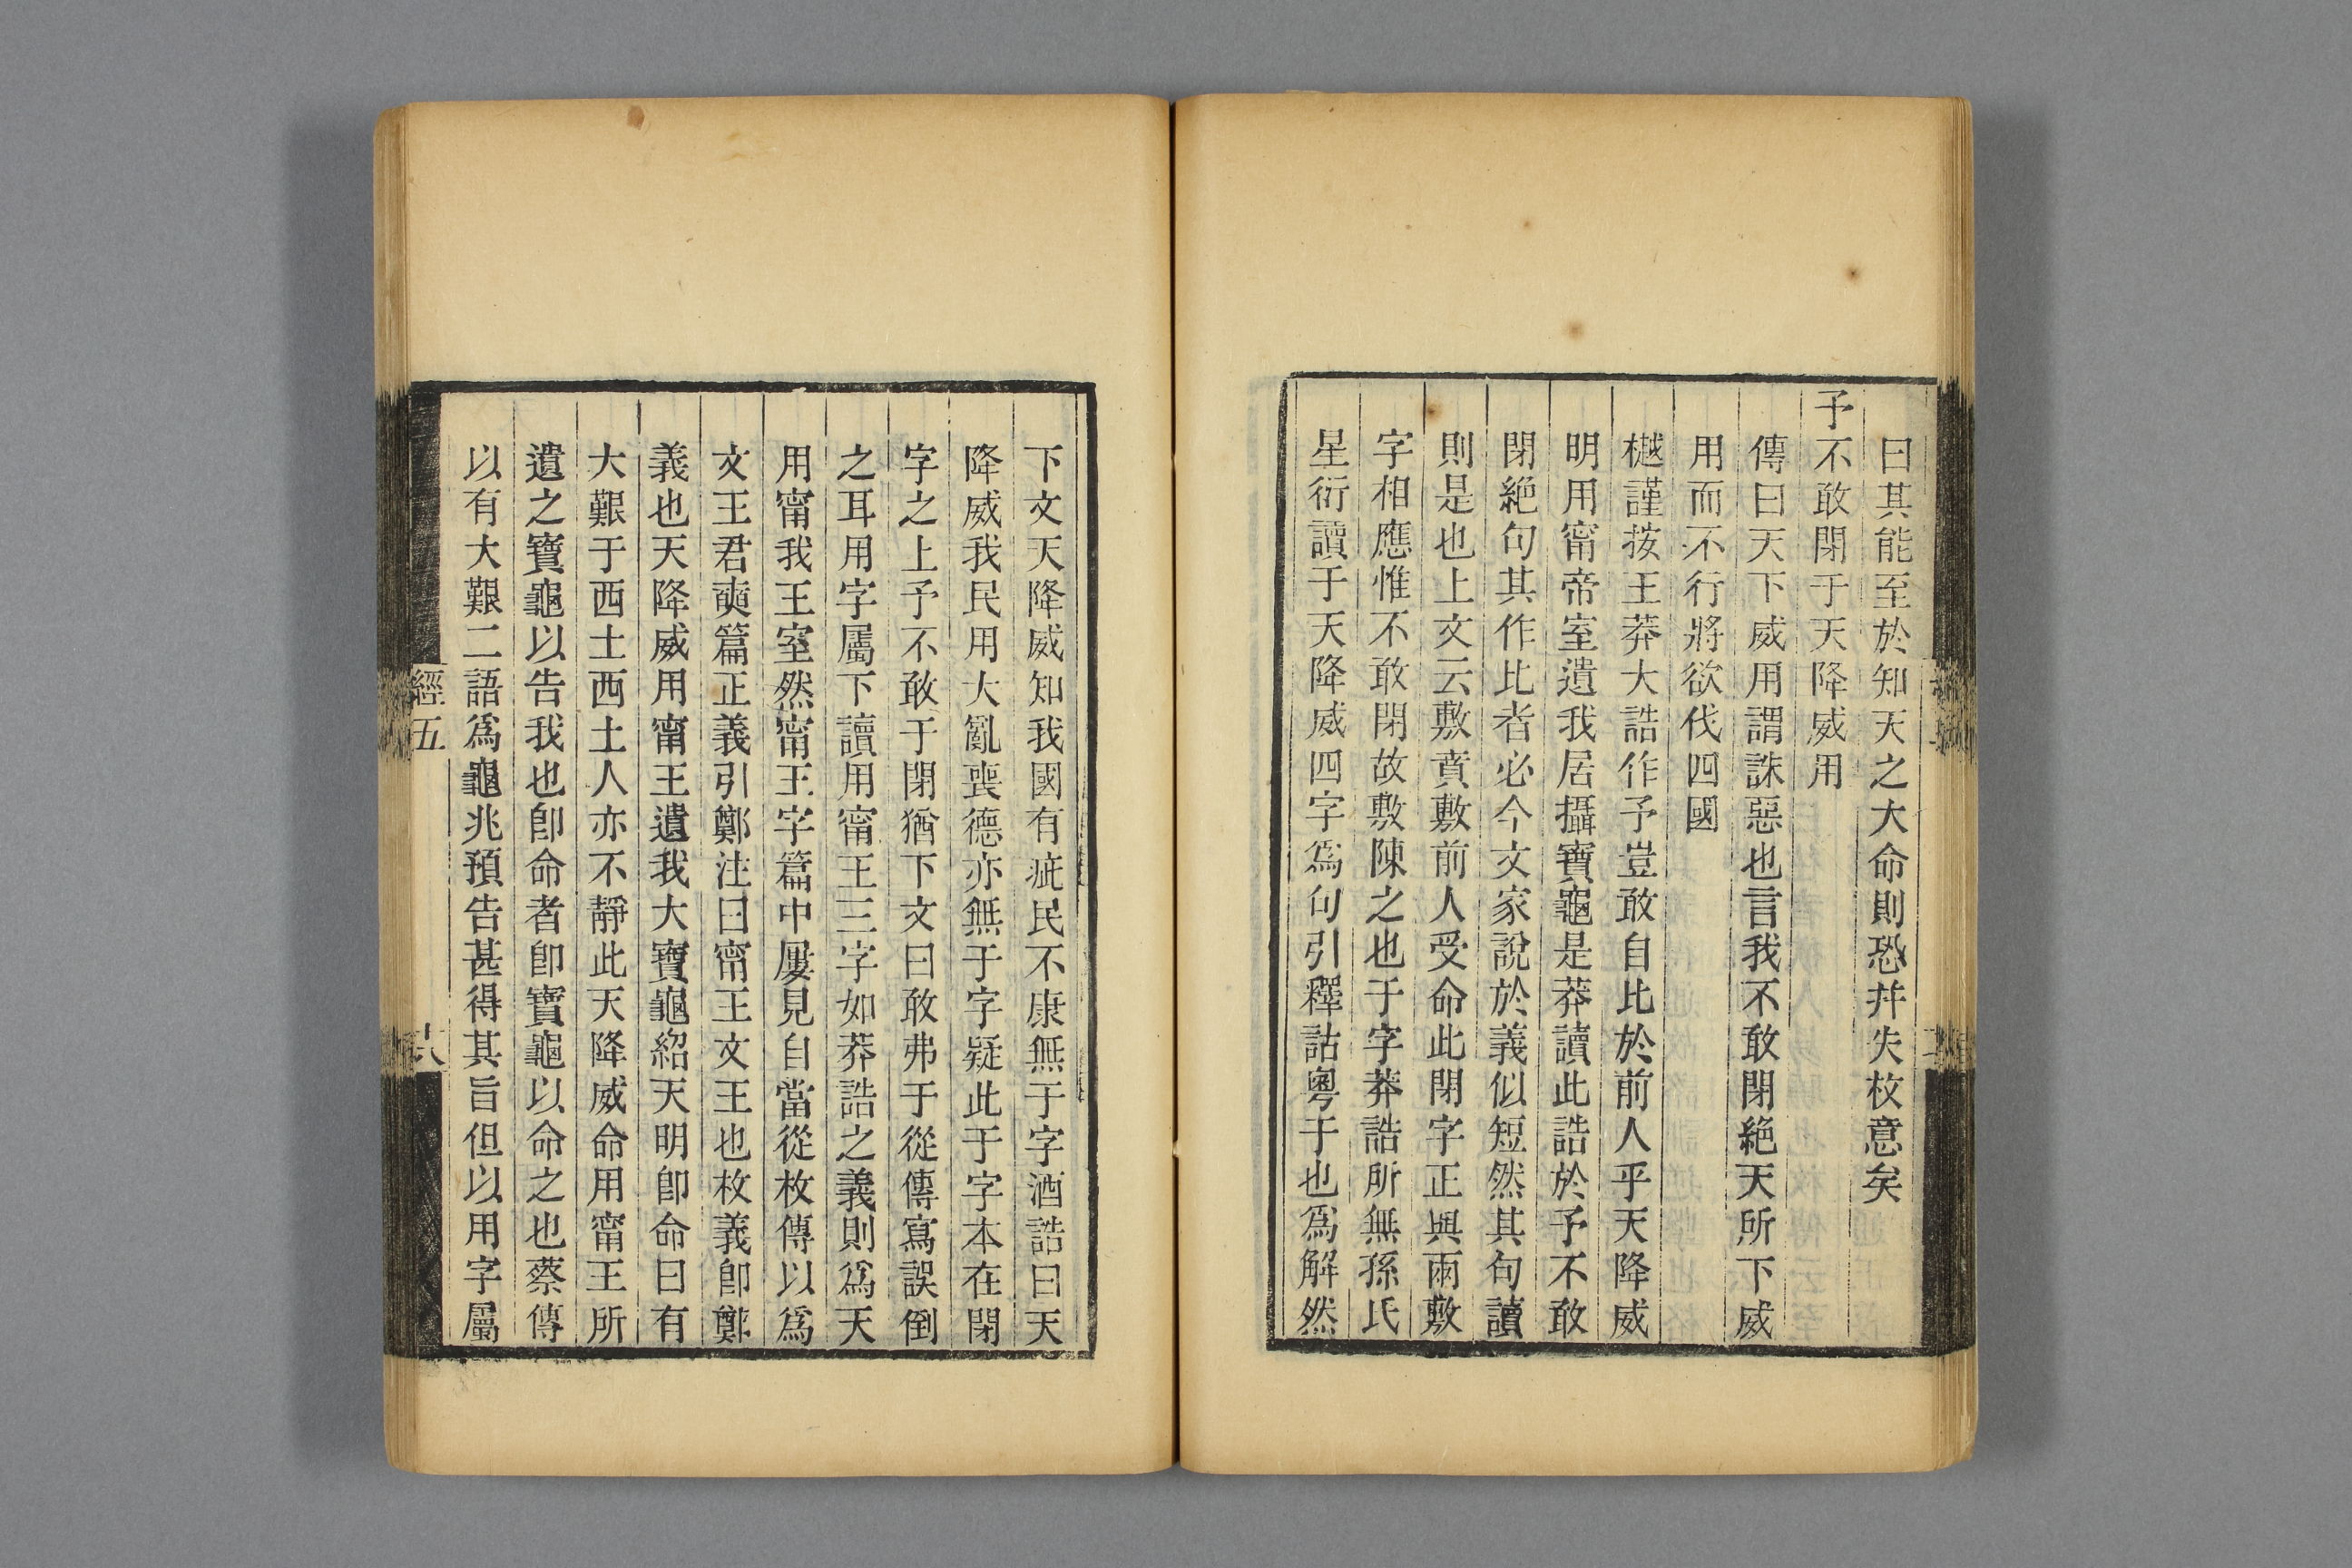 曰其能至於知天之大命則恐幷失枚意矣
予不敢閉于天降威用
傳曰天下威用謂誅惡也言我不敢閉絶天所下威
用而不行將欲伐四國
樾謹按王莽大誥作予豈敢自比於前人乎天降威
明用甯帝室遺我居攝寶龜是莽讀此誥於予不敢
閉絶句其作比者必今文家說於義似短然其句讀
則是也上文云敷賁敷前人受命此閉字正與兩敷
字相應惟不敢閉故敷陳之也于字莽誥所無孫氏
星衍讀于天降威四字爲句引釋詁粵于也爲解然
下文天降威知我國有疵民不康無于字酒誥曰天
降威我民用大亂喪德亦無于字疑此于字本在閉
字之上予不敢于閉猶下文曰敢弗于從傳寫誤倒
之耳用字屬下讀用甯王三字如莽誥之義則爲天
用甯我王室然甯王字篇中屢見自當從枚傳以爲
文王君奭篇正義引鄭注曰甯王文王也枚義卽鄭
義也天降威用甯王遺我大寶龜紹天明卽命曰有
大艱于西土西土人亦不靜此天降威命用甯王所
遺之寶龜以告我也卽命者卽寶龜以命之也蔡傳
以有大艱二語爲龜兆預告甚得其旨但以用字屬
經五
十八